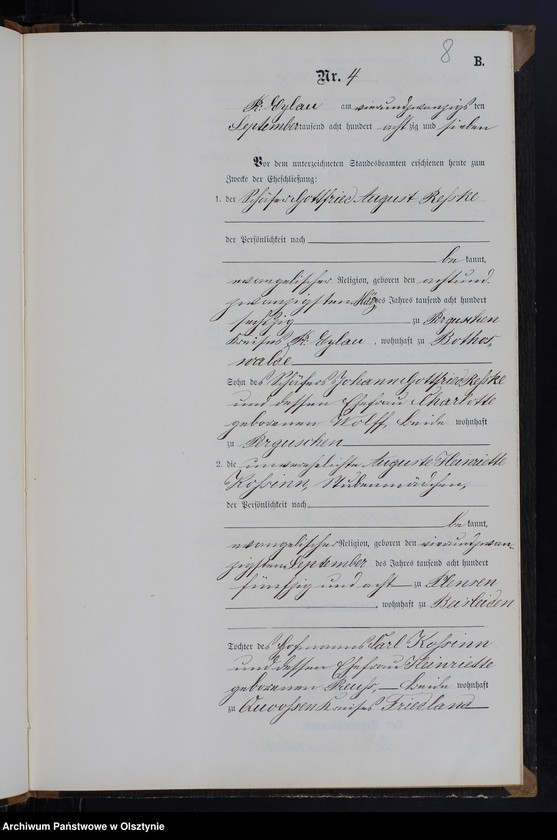 8
B.
Nr. 4
Pr. Eylau am vierundzwanzigs ten
September tausend acht hundert acht zig und sieben
Vor dem unterzeichneten Standesbeamten erschienen heute zum
Zwecke der Eheschließung:
1. der Schäfer Gottfried August Reßke
der Persönlichkeit nach
be kannt,
evangelischer Religion, geboren den achtund
zwanzigsten März des Jahres tausend acht hundert
sechzig zu Perguschen
Kreises Pr. Eylau, wohnhaft zu Bothes
walde
Sohn des Schäfers Johann Gottfried Reßke
und dessen Ehefrau Charlotte
geborenen Wolff, beide wohnhaft
zu Perguschen
2. die unverehelichte Auguste Heinriette
Kossinn, Stubenmädchen,
der Persönlichkeit nach
be kannt,
evangelischer Religion, geboren den vierundzwan-
zigsten September des Jahres tausend acht hundert
fünfzig und acht zu Plensen
, wohnhaft zu Beisleiden
Tochter des Hofmanns Carl Kossinn
und dessen Ehefrau Heinriette
geborenen Reuß, beide wohnhaft
zu Quoossen Kreises Friedland
Archiwum Państwowe w Olsztynie